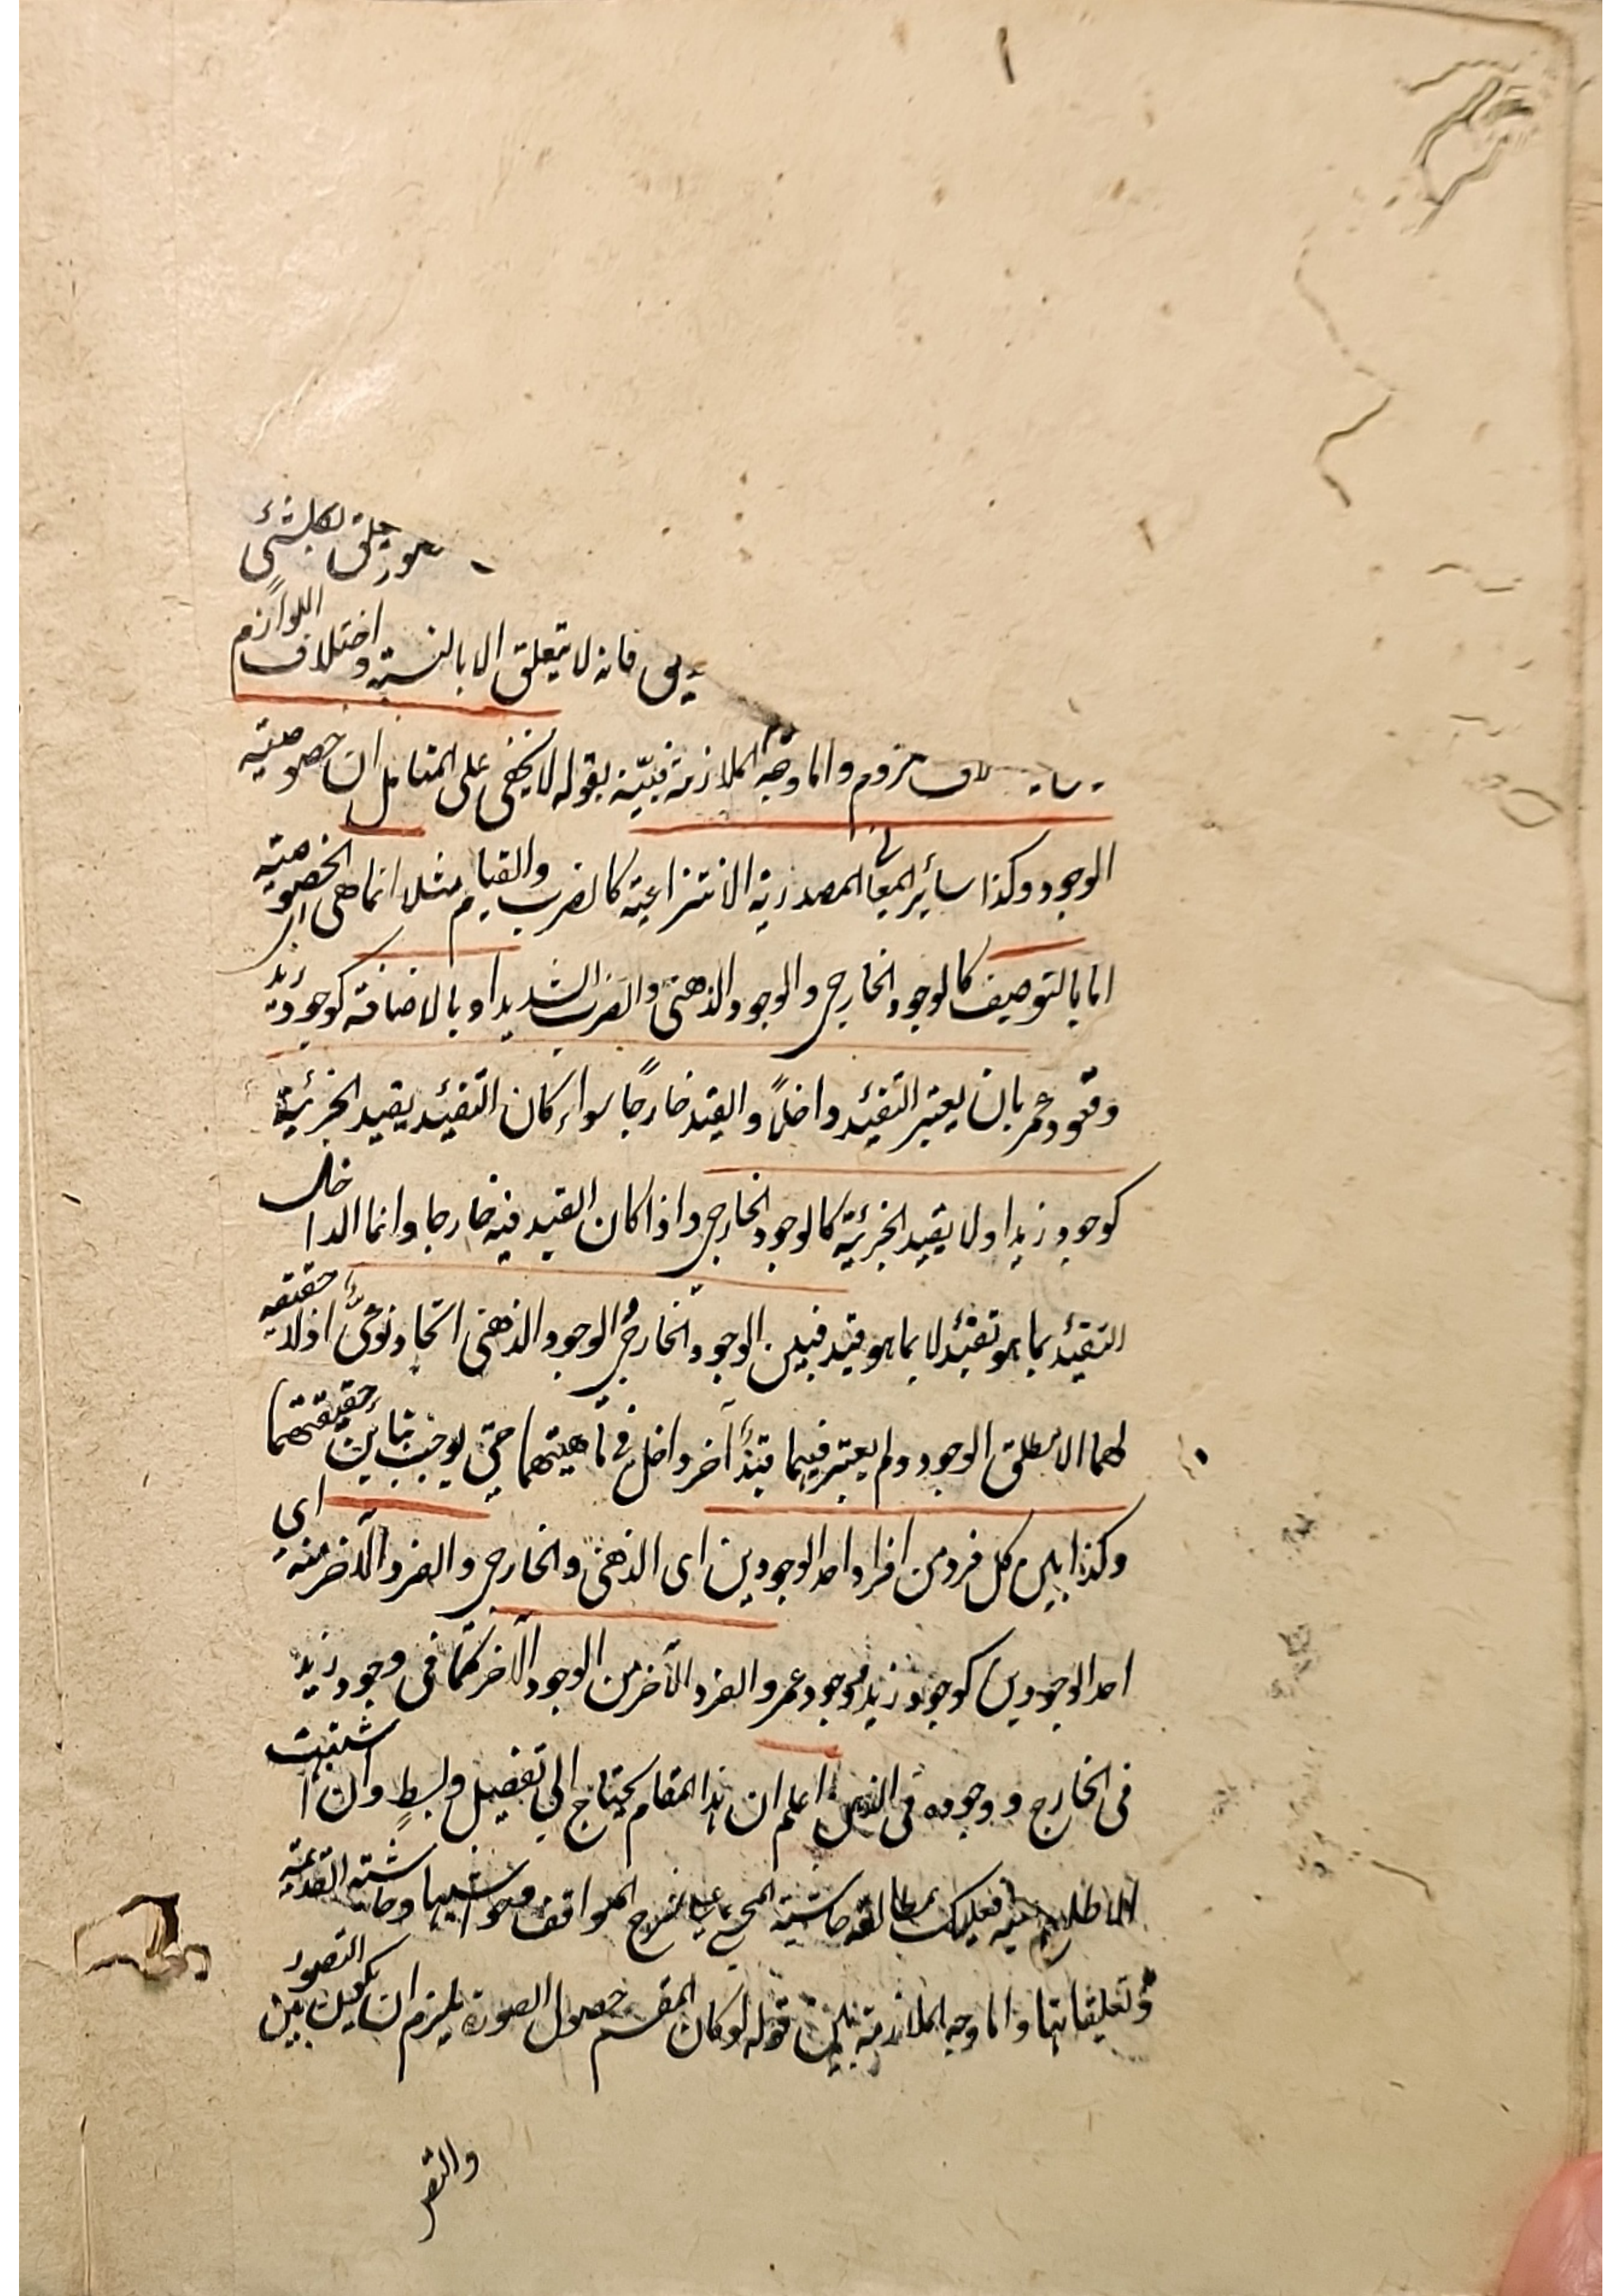 يتعلق بكل شئ
فانه لا يتعلق الا بالنسبة واختلاف اللوازم
ملزوم واما وجه الملازمة فبيّنه بقوله لا يخفى على المتامل ان خصوصية
الوجود وكذا سائر المعانى المصدرية الانتزاعية كالضرب والقيام مثلا انما هى الخصوصية
اما بالتوصيف كالوجود الخارجى والوجود الذهنى والضرب الشديد او بالاضافة كوجود زيد
وقعود عمر بان يعتبر التقئيد داخلاً والقيد خارجاً سواء كان التقئيد يقيد الجزئية
كوجود زيد او لا يقيد الجزئية كالوجود الخارجى واذا كان القيد فيه خارجا وانما الداخل
التقئيد بما هو تقئيد لا بما هو قيد فبين الوجود الخارجى والوجود الذهنى اتحاد نوعىّ اذ لا حقيقة
لهما الا مطلق الوجود ولم يعتبر فيهما قيدٌ آخر داخل فى ماهيتهما حتى يوجب تباين حقيقتهما
وكذا بين كل فرد من افراد احد الوجودين اى الذهنى والخارجى والفرد الآخر منه اى
احد الوجودين كوجود زيد ووجود عمر والفرد الآخر من الوجود الآخر كما فى وجود زيد
فى الخارج ووجوده فى الذهن اعلم ان هذا المقام يحتاج الى تفصيل وبسطٍ وان اشتهيت
الاطلاع عليه فعليك بمطالعة حاشية المحشى على شرح المواقف وحواشيها وحاشيته القديمة
وتعليقاتها واما وجه الملازمة بين قوله لو كان المقسم حصول الصورة يلزم ان يكون بين التصور
والتصد